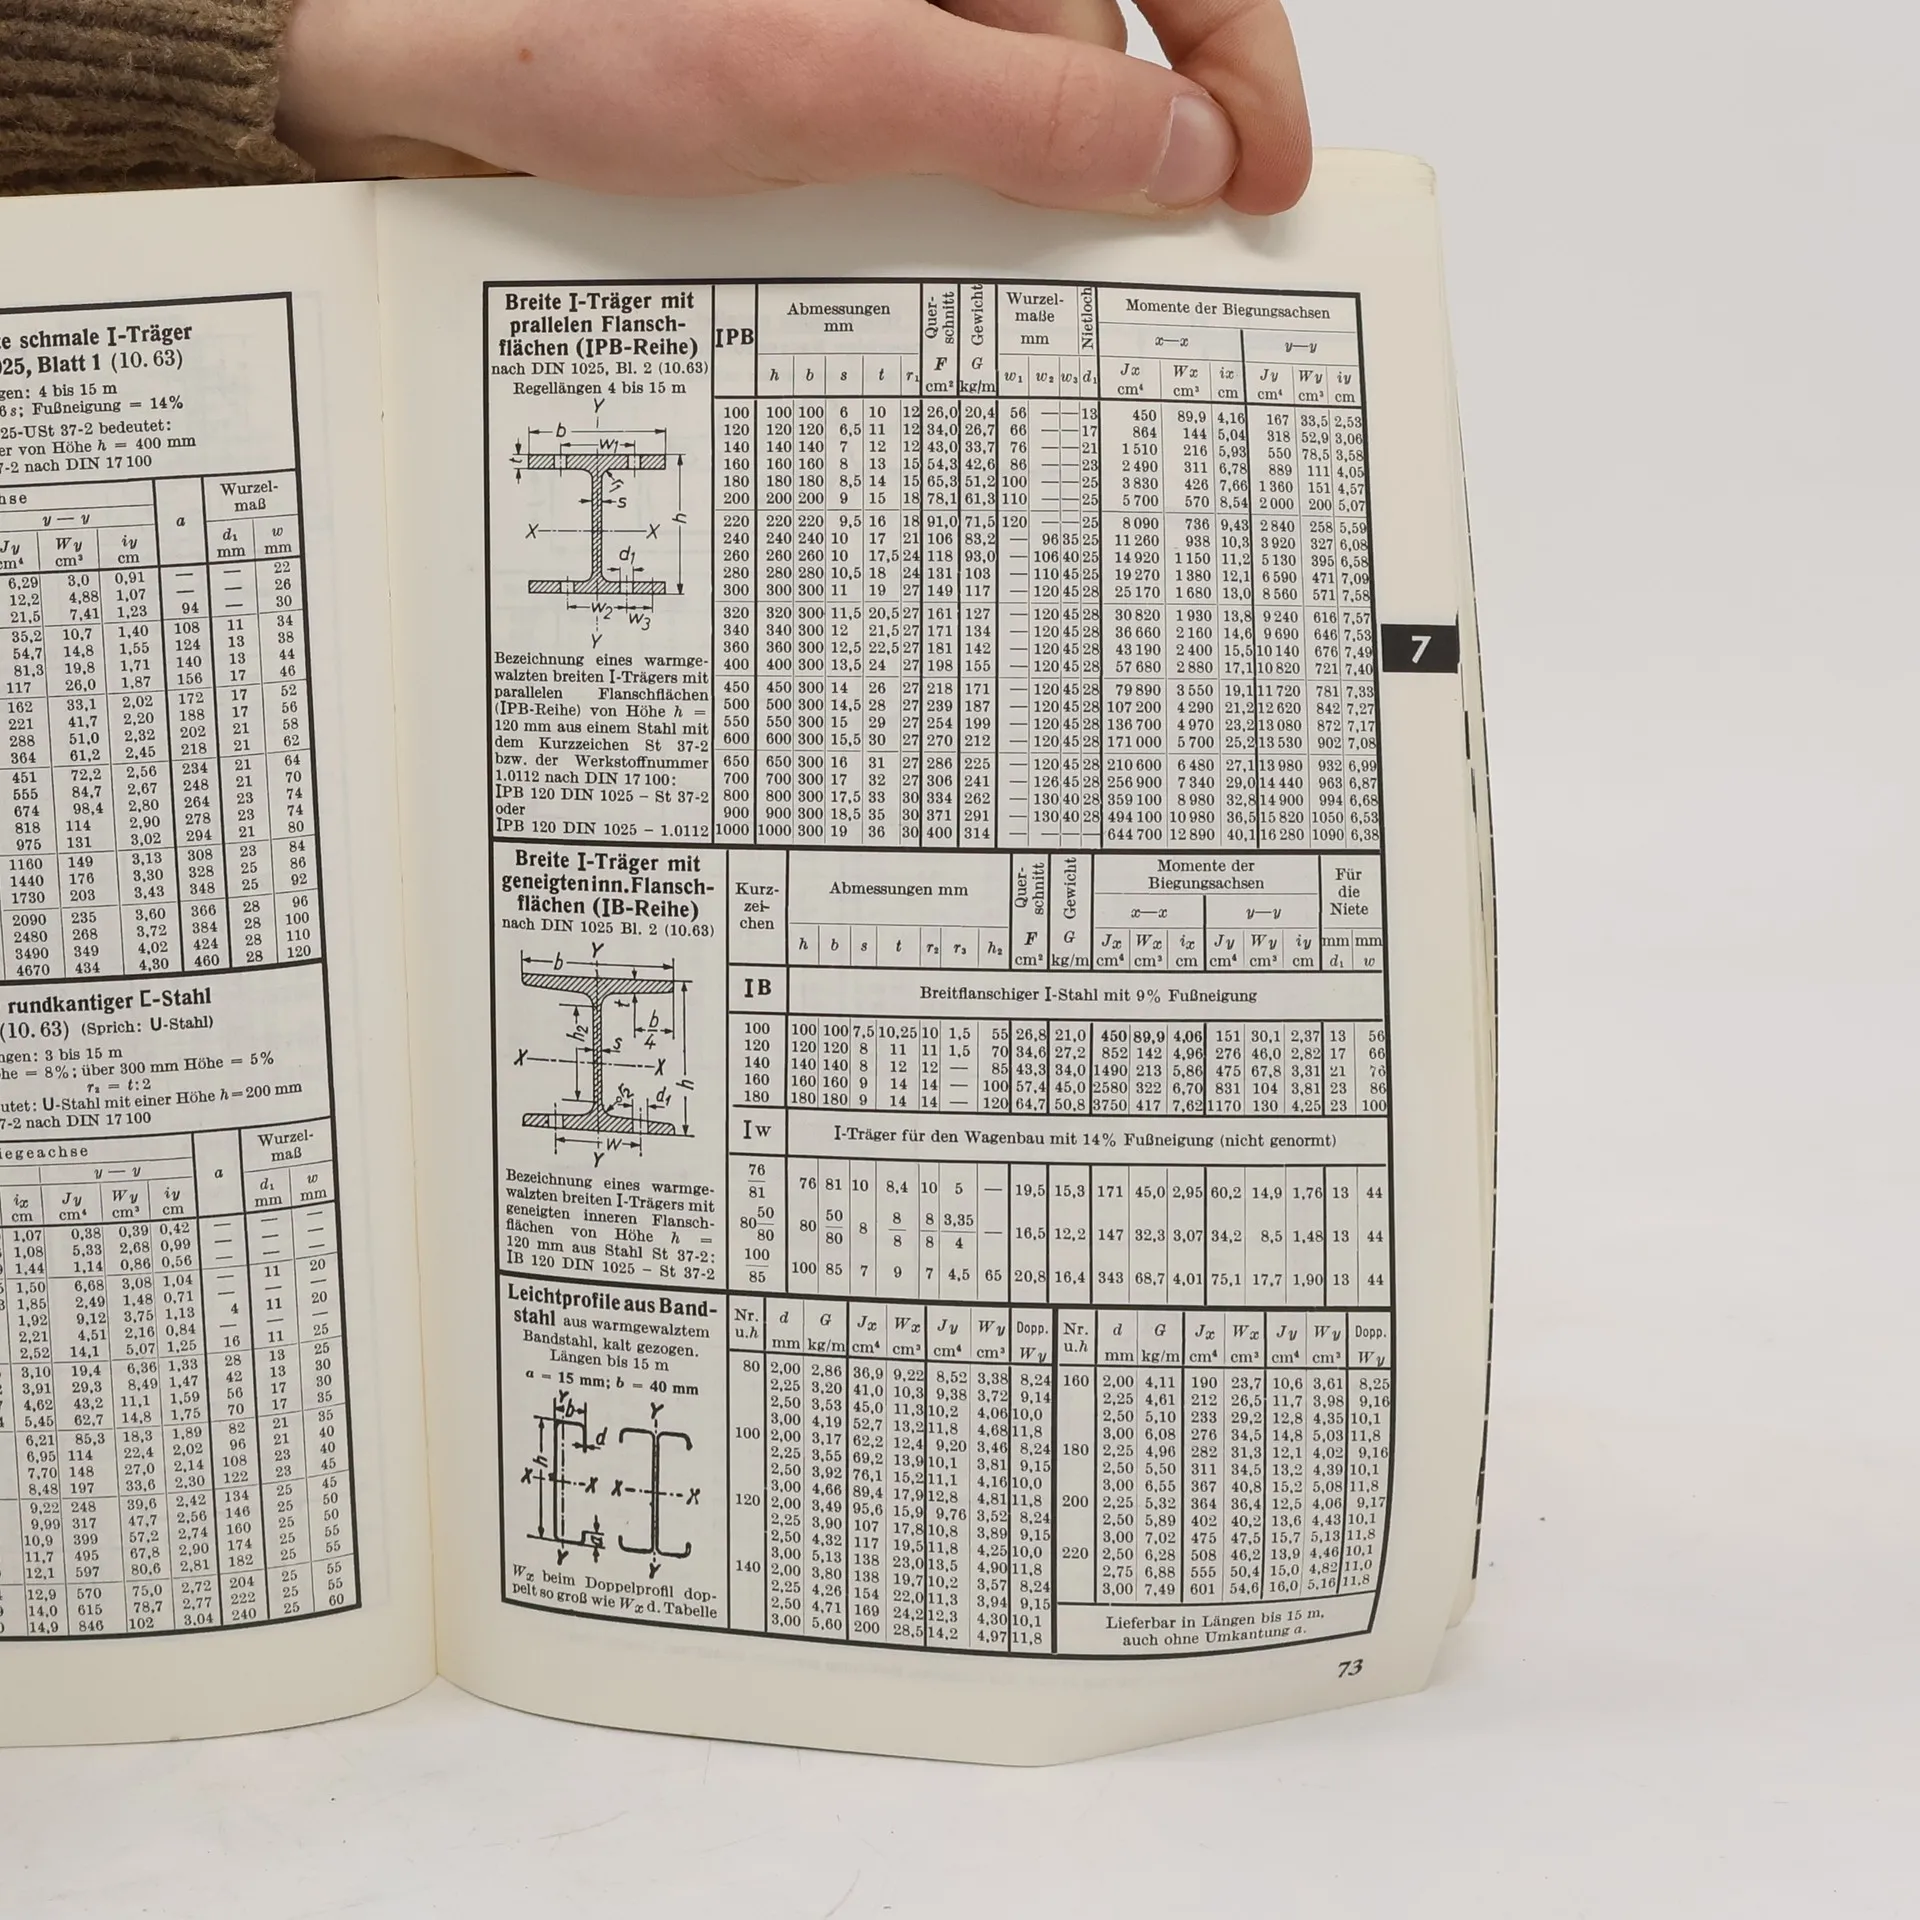 e schmale I-Träger
025, Blatt 1 (10. 63)
gen: 4 bis 15 m
6 s; Fußneigung = 14%
25-USt 37-2 bedeutet:
er von Höhe h = 400 mm
7-2 nach DIN 17 100
hse
a
Wurzel-
maß
y — y
Jy Wy iy d₁ w
cm⁴ cm³ cm mm mm
6,29 3,0 0,91 — — 22
12,2 4,88 1,07 — — 26
21,5 7,41 1,23 94 — 30
35,2 10,7 1,40 108 11 34
54,7 14,8 1,55 124 13 38
81,3 19,8 1,71 140 13 44
117 26,0 1,87 156 17 46
162 33,1 2,02 172 17 52
221 41,7 2,20 188 17 56
288 51,0 2,32 202 21 58
364 61,2 2,45 218 21 62
451 72,2 2,56 234 21 64
555 84,7 2,67 248 21 70
674 98,4 2,80 264 23 74
818 114 2,90 278 23 74
975 131 3,02 294 21 80
1160 149 3,13 308 23 84
1440 176 3,30 328 25 86
1730 203 3,43 348 25 92
2090 235 3,60 366 28 96
2480 268 3,72 384 28 100
3490 349 4,02 424 28 110
4670 434 4,30 460 28 120
rundkantiger [-Stahl
(10. 63) (Sprich: U-Stahl)
ngen: 3 bis 15 m
he = 8%; über 300 mm Höhe = 5%
r₂ = t:2
utet: U-Stahl mit einer Höhe h = 200 mm
7-2 nach DIN 17 100
iegeachse
a
Wurzel-
maß
y — y
ix Jy Wy iy d₁ w
cm cm⁴ cm³ cm mm mm
1,07 0,38 0,39 0,42 — — —
1,08 5,33 2,68 0,99 — — —
1,44 1,14 0,86 0,56 — — —
1,50 6,68 3,08 1,04 — 11 20
1,85 2,49 1,48 0,71 — — —
1,92 9,12 3,75 1,13 4 11 20
2,21 4,51 2,16 0,84 — — —
2,52 14,1 5,07 1,25 16 11 25
3,10 19,4 6,36 1,33 28 13 25
3,91 29,3 8,49 1,47 42 13 30
4,62 43,2 11,1 1,59 56 17 30
5,45 62,7 14,8 1,75 70 17 35
6,21 85,3 18,3 1,89 82 21 35
6,95 114 22,4 2,02 96 21 40
7,70 148 27,0 2,14 108 23 40
8,48 197 33,6 2,30 122 23 45
9,22 248 39,6 2,42 134 25 45
9,99 317 47,7 2,56 146 25 50
10,9 399 57,2 2,74 160 25 50
11,7 495 67,8 2,90 174 25 55
12,1 597 80,6 2,81 182 25 55
12,9 570 75,0 2,72 204 25 55
14,0 615 78,7 2,77 222 25 55
14,9 846 102 3,04 240 25 60
Breite I-Träger mit
prallelen Flansch-
flächen (IPB-Reihe)
nach DIN 1025, Bl. 2 (10.63)
Regellängen 4 bis 15 m
Y
b
w₁
t
r₁
s
X X
h
d₁
w₂
w₃
Y
Bezeichnung eines warmge-
walzten breiten I-Trägers mit
parallelen Flanschflächen
(IPB-Reihe) von Höhe h =
120 mm aus einem Stahl mit
dem Kurzzeichen St 37-2
bzw. der Werkstoffnummer
1.0112 nach DIN 17 100:
IPB 120 DIN 1025 – St 37-2
oder
IPB 120 DIN 1025 – 1.0112
IPB
Abmessungen
mm
Quer-
schnitt
Gewicht
Wurzel-
maße
mm
Nietloch
Momente der Biegungsachsen
x—x y—y
h b s t r₁ F G w₁ w₂ w₃ d₁ Jx Wx ix Jy Wy iy
cm² kg/m cm⁴ cm³ cm cm⁴ cm³ cm
100 100 100 6 10 12 26,0 20,4 56 — — 13 450 89,9 4,16 167 33,5 2,53
120 120 120 6,5 11 12 34,0 26,7 66 — — 17 864 144 5,04 318 52,9 3,06
140 140 140 7 12 12 43,0 33,7 76 — — 21 1 510 216 5,93 550 78,5 3,58
160 160 160 8 13 15 54,3 42,6 86 — — 23 2 490 311 6,78 889 111 4,05
180 180 180 8,5 14 15 65,3 51,2 100 — — 25 3 830 426 7,66 1 360 151 4,57
200 200 200 9 15 18 78,1 61,3 110 — — 25 5 700 570 8,54 2 000 200 5,07
220 220 220 9,5 16 18 91,0 71,5 120 — — 25 8 090 736 9,43 2 840 258 5,59
240 240 240 10 17 21 106 83,2 — 96 35 25 11 260 938 10,3 3 920 327 6,08
260 260 260 10 17,5 24 118 93,0 — 106 40 25 14 920 1 150 11,2 5 130 395 6,58
280 280 280 10,5 18 24 131 103 — 110 45 25 19 270 1 380 12,1 6 590 471 7,09
300 300 300 11 19 27 149 117 — 120 45 28 25 170 1 680 13,0 8 560 571 7,58
320 320 300 11,5 20,5 27 161 127 — 120 45 28 30 820 1 930 13,8 9 240 616 7,57
340 340 300 12 21,5 27 171 134 — 120 45 28 36 660 2 160 14,6 9 690 646 7,53
360 360 300 12,5 22,5 27 181 142 — 120 45 28 43 190 2 400 15,5 10 140 676 7,49
400 400 300 13,5 24 27 198 155 — 120 45 28 57 680 2 880 17,1 10 820 721 7,40
450 450 300 14 26 27 218 171 — 120 45 28 79 890 3 550 19,1 11 720 781 7,33
500 500 300 14,5 28 27 239 187 — 120 45 28 107 200 4 290 21,2 12 620 842 7,27
550 550 300 15 29 27 254 199 — 120 45 28 136 700 4 970 23,2 13 080 872 7,17
600 600 300 15,5 30 27 270 212 — 120 45 28 171 000 5 700 25,2 13 530 902 7,08
650 650 300 16 31 27 286 225 — 120 45 28 210 600 6 480 27,1 13 980 932 6,99
700 700 300 17 32 27 306 241 — 126 45 28 256 900 7 340 29,0 14 440 963 6,87
800 800 300 17,5 33 30 334 262 — 130 40 28 359 100 8 980 32,8 14 900 994 6,68
900 900 300 18,5 35 30 371 291 — 130 40 28 494 100 10 980 36,5 15 820 1050 6,53
1000 1000 300 19 36 30 400 314 — — — — 644 700 12 890 40,1 16 280 1090 6,38
7
Breite I-Träger mit
geneigten inn. Flansch-
flächen (IB-Reihe)
nach DIN 1025 Bl. 2 (10.63)
Y
b
t
h₂
b/4
s
X X
h
r₂
d₁
w
Y
Bezeichnung eines warmge-
walzten breiten I-Trägers mit
geneigten inneren Flansch-
flächen von Höhe h =
120 mm aus Stahl St 37-2:
IB 120 DIN 1025 – St 37-2
Kurz-
zei-
chen
Abmessungen mm
Quer-
schnitt
Gewicht
Momente der
Biegungsachsen
Für
die
Niete
x—x y—y
h b s t r₂ r₃ h₂ F G Jx Wx ix Jy Wy iy mm mm
cm² kg/m cm⁴ cm³ cm cm⁴ cm³ cm d₁ w
IB Breitflanschiger I-Stahl mit 9% Fußneigung
100 100 100 7,5 10,25 10 1,5 55 26,8 21,0 450 89,9 4,06 151 30,1 2,37 13 56
120 120 120 8 11 11 1,5 70 34,6 27,2 852 142 4,96 276 46,0 2,82 17 66
140 140 140 8 12 12 — 85 43,3 34,0 1490 213 5,86 475 67,8 3,31 21 76
160 160 160 9 14 14 — 100 57,4 45,0 2580 322 6,70 831 104 3,81 23 86
180 180 180 9 14 14 — 120 64,7 50,8 3750 417 7,62 1170 130 4,25 23 100
Iw I-Träger für den Wagenbau mit 14% Fußneigung (nicht genormt)
76/81 76 81 10 8,4 10 5 — 19,5 15,3 171 45,0 2,95 60,2 14,9 1,76 13 44
80 50/80 80 50/80 8 8/8 8/8 3,35/4 — 16,5 12,2 147 32,3 3,07 34,2 8,5 1,48 13 44
100/85 100 85 7 9 7 4,5 65 20,8 16,4 343 68,7 4,01 75,1 17,7 1,90 13 44
Leichtprofile aus Band-
stahl aus warmgewalztem
Bandstahl, kalt gezogen.
Längen bis 15 m
a = 15 mm; b = 40 mm
Y Y
b
d
h
X X X X
a
Y Y
Wx beim Doppelprofil dop-
pelt so groß wie Wx d. Tabelle
Nr. d G Jx Wx Jy Wy Dopp.
u.h mm kg/m cm⁴ cm³ cm⁴ cm³ Wy
80 2,00 2,86 36,9 9,22 8,52 3,38 8,24
2,25 3,20 41,0 10,3 9,38 3,72 9,14
2,50 3,53 45,0 11,3 10,2 4,06 10,0
3,00 4,19 52,7 13,2 11,8 4,68 11,8
100 2,00 3,17 62,2 12,4 9,20 3,46 8,24
2,25 3,55 69,2 13,9 10,1 3,81 9,15
2,50 3,92 76,1 15,2 11,1 4,16 10,0
3,00 4,66 89,4 17,9 12,8 4,81 11,8
120 2,00 3,49 95,6 15,9 9,76 3,52 8,24
2,25 3,90 107 17,8 10,8 3,89 9,15
2,50 4,32 117 19,5 11,8 4,25 10,0
3,00 5,13 138 23,0 13,5 4,90 11,8
140 2,00 3,80 138 19,7 10,2 3,57 8,24
2,25 4,26 154 22,0 11,3 3,94 9,15
2,50 4,71 169 24,2 12,3 4,30 10,1
3,00 5,60 200 28,5 14,2 4,97 11,8
Nr. d G Jx Wx Jy Wy Dopp.
u.h mm kg/m cm⁴ cm³ cm⁴ cm³ Wy
160 2,00 4,11 190 23,7 10,6 3,61 8,25
2,25 4,61 212 26,5 11,7 3,98 9,16
2,50 5,10 233 29,2 12,8 4,35 10,1
3,00 6,08 276 34,5 14,8 5,03 11,8
180 2,25 4,96 282 31,3 12,1 4,02 9,16
2,50 5,50 311 34,5 13,2 4,39 10,1
3,00 6,55 367 40,8 15,2 5,08 11,8
200 2,25 5,32 364 36,4 12,5 4,06 9,17
2,50 5,89 402 40,2 13,6 4,43 10,1
3,00 7,02 475 47,5 15,7 5,13 11,8
220 2,50 6,28 508 46,2 13,9 4,46 10,1
2,75 6,88 555 50,4 15,0 4,82 11,0
3,00 7,49 601 54,6 16,0 5,16 11,8
Lieferbar in Längen bis 15 m,
auch ohne Umkantung a.
73